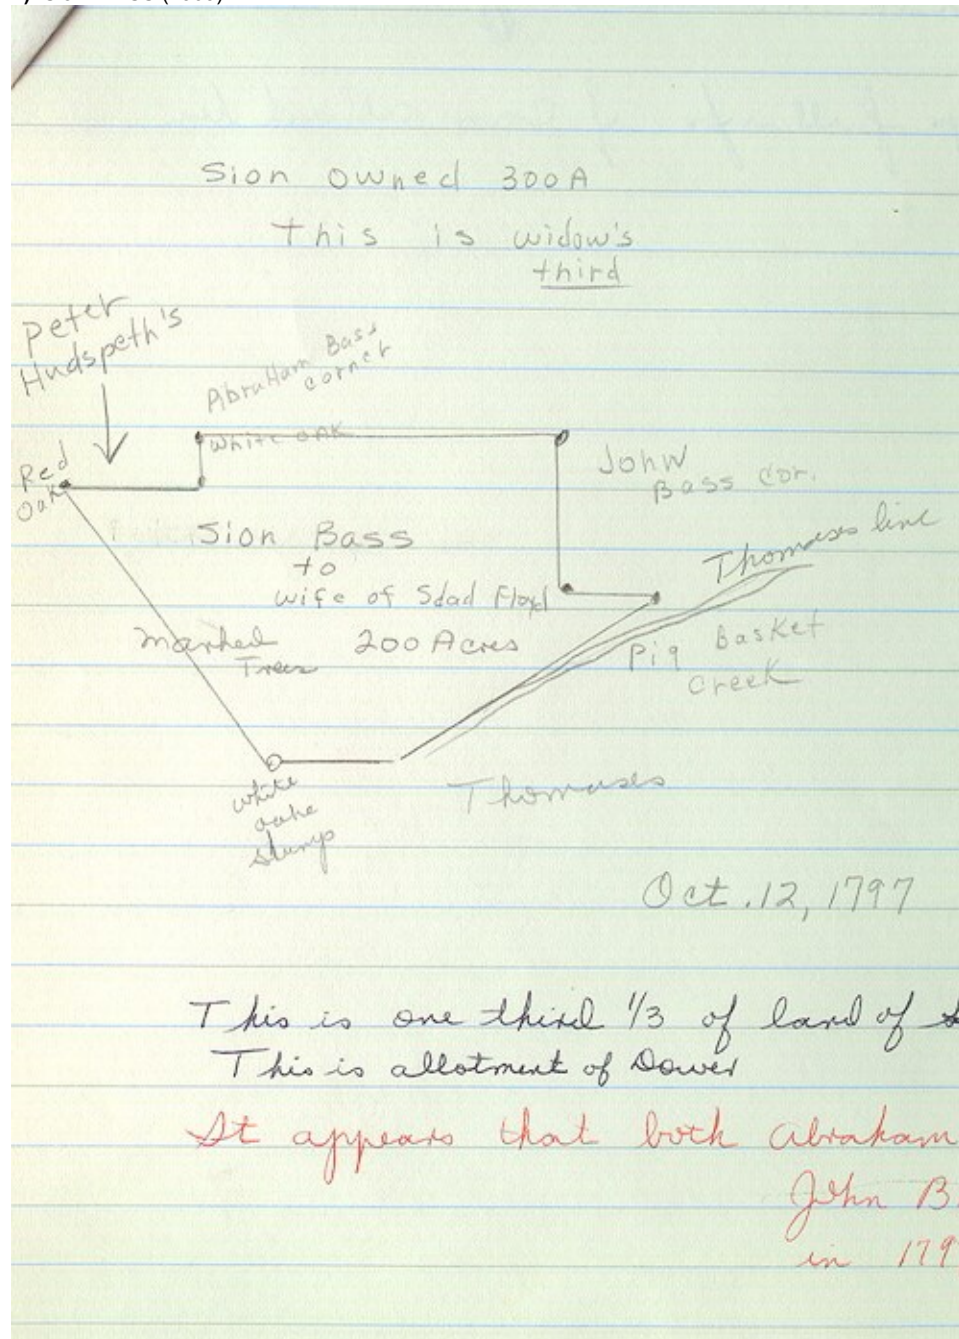 Sion owned 300A
This is widow's
third
Peter
Hudspeth's
Abraham Bass
corner
White OAK
Red
Oak
John
Bass Cor.
Thomases line
Sion Bass
to
wife of Sdad Floyd
Marked
Trees
200 Acres
Pig Basket
Creek
Thomases
white
oake
stump
Oct. 12, 1797
This is one third 1/3 of land of
This is allotment of Dower
It appears that both Abraham
John B
in 179